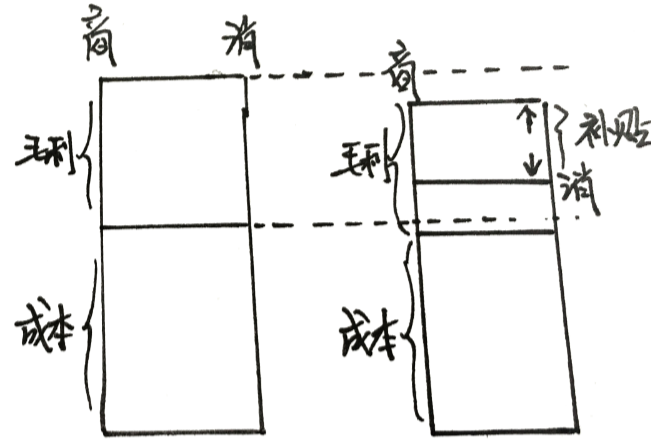 商 消
毛利
成本
商
毛利
补贴
消
成本